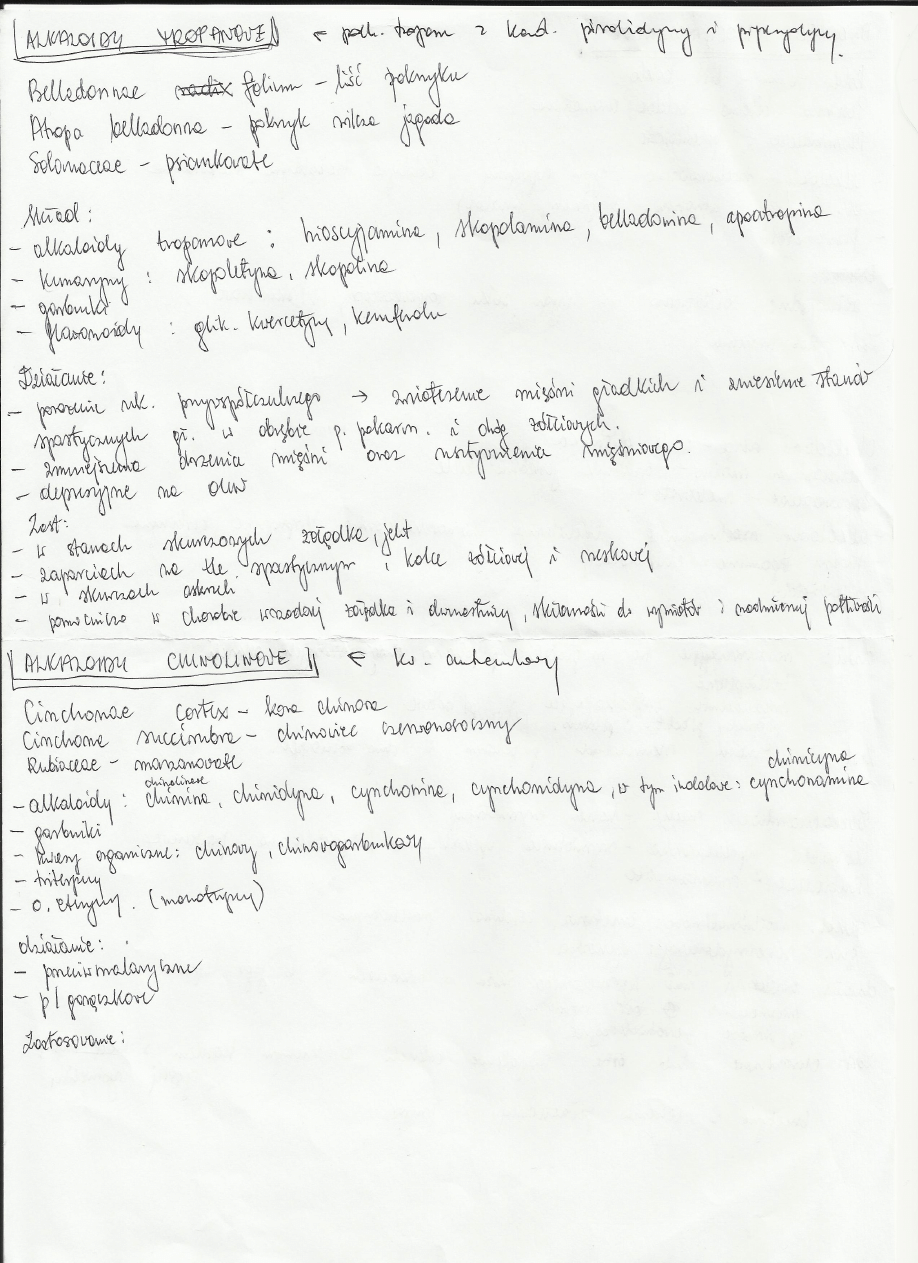 ALKALOIDY TROPANOWE ← poch. tropanu z kond. pirolidyny i piperydyny.
Belladonnae radix folium - liść pokrzyku
Atropa belladonna - pokrzyk wilcza jagoda
Solanaceae - psiankowate
Skład:
- alkaloidy tropanowe : hioscyjamina, skopolamina, belladonina, apoatropina
- kumaryny : skopoletyna, skopolina
- garbniki
- flawonoidy : glik. kwercetyny, kemferolu
Działanie:
- porażenie ukł. przywspółczulnego → zwiotczenie mięśni gładkich i zniesienie stanów
spastycznych gł. w obrębie p. pokarm. i dróg żółciowych.
- zmniejszenie drżenia mięśni oraz usztywnienia mięśniowego.
- depresyjne na OUN
Zast:
- w stanach skurczowych żołądka, jelit
- zaparciach na tle spastycznym, kolce żółciowej i nerkowej
- w skurczach oskrzeli
- pomocniczo w chorobie wrzodowej żołądka i dwunastnicy, skłonności do wymiotów i nadmiernej potliwości
ALKALOIDY CHINOLINOWE ← kw. antranilowy
Cinchonae cortex - kora chinowa
Cinchona succirubra - chinowiec czerwonosoczny
Rubiaceae - marzanowate
chinolinowe chinicyna
- alkaloidy : chinina, chinidyna, cynchonina, cynchonidyna, w tym indolowe: cynchonamina
- garbniki
- kwasy organiczne: chinowy, chinowogarbnikowy
- triterpeny
- o. eteryczny. (monoterpeny)
działanie:
- przeciwmalaryczne
- p/gorączkowe
Zastosowanie: